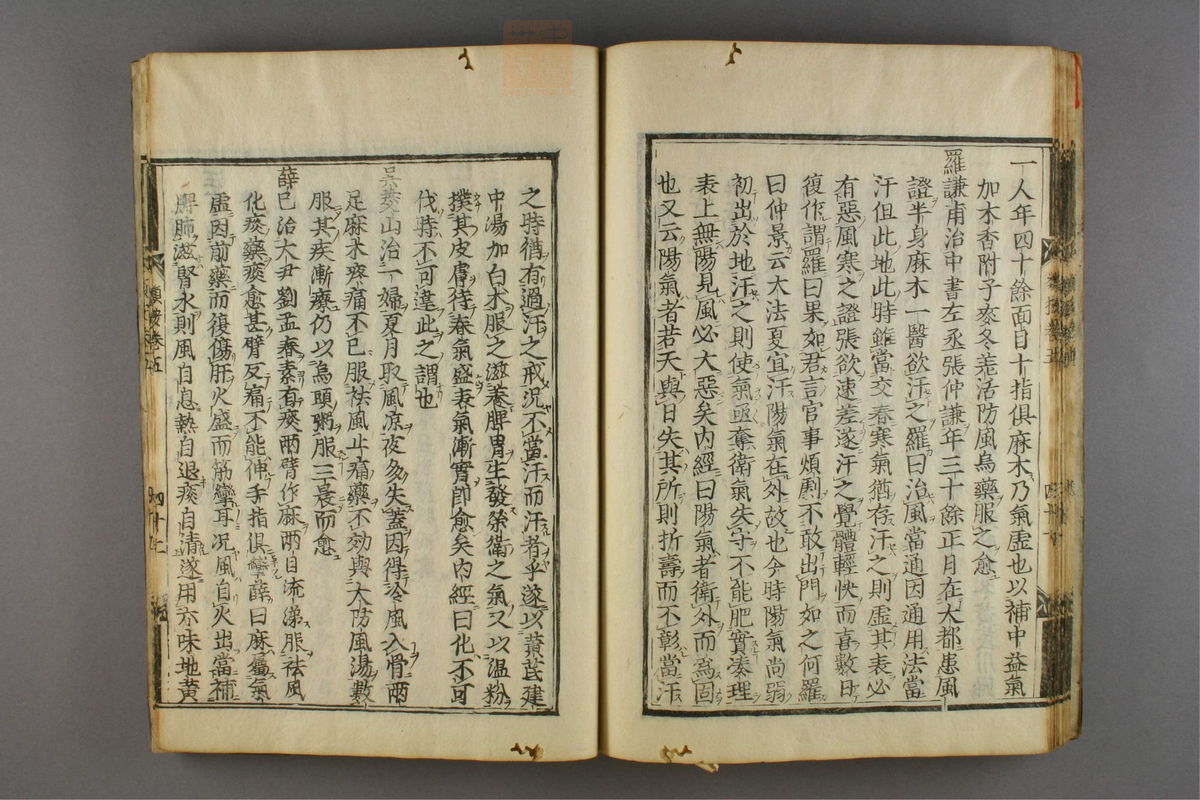 一人年四十餘面目十指俱麻木乃氣虛也以補中益氣
加木香附子麥冬羌活防風烏藥服之愈
羅謙甫治中書左丞張仲謙年三十餘正月在大都患風
證半身麻木一醫欲汗之羅曰治風當通因通用法當
汗但此地此時雖當交春寒氣猶存汗之則虛其表必
有惡風寒之證張欲速差遂汗之覺體輕快而喜數日
復作謂羅曰果如君言官事煩劇不敢出門如之何羅
曰仲景云大法夏宜汗陽氣在外故也今時陽氣尚弱
初出於地汗之則使氣亟奪衛氣失守不能肥實湊理
表上無陽見風必大惡矣內經曰陽氣者衛外而爲固
也又云陽氣者若天與日失其所則折壽而不彰當汗
之時猶有過汗之戒況不當汗而汗者乎遂以黃芪建
中湯加白朮服之滋養脾胃生發榮衛之氣又以温粉
撲其皮膚待春氣盛表氣漸實即愈矣內經曰化不可
伐時不可違此之謂也
吳茭山治一婦夏月取風凉夜多失蓋因得冷風入骨兩
足麻木疼痛不已服祛風止痛藥不効與大防風湯數
服其疾漸瘳仍以烏頭粥服三晨而愈
薛已治大尹劉孟春素有痰兩臂作麻兩目流涕服祛風
化痰藥痰愈甚臂反痛不能伸手指俱攣薛曰麻屬氣
虛因前藥而復傷肝火盛而筋攣耳况風自火出當補
脾肺滋腎水則風自息熱自退痰自清遂用六味地黃
類案卷五
四十二